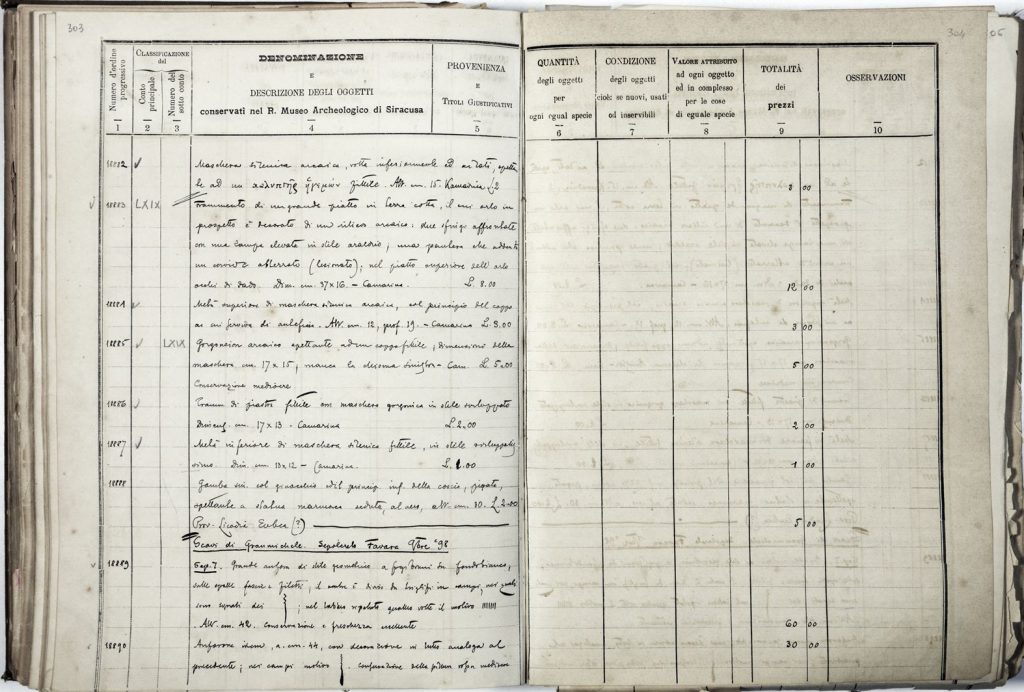 303
Numero d'ordine progressivo
CLASSIFICAZIONE
del
Conto principale
Numero del sotto conto
DENOMINAZIONE
E
DESCRIZIONE DEGLI OGGETTI
conservati nel R. Museo Archeologico di Siracusa
PROVENIENZA
E
TITOLI GIUSTIFICATIVI
1 2 3 4 5
18882 Maschera silenica arcaica, rotta inferiormente ed ai lati,
ad un καλυπτὴρ ἡγεμών fittile. Alt. cm. 15. Kamarina £ 2
18883 LXIX Frammento di un grande piatto in terra cotta, il cui orlo in
prospetto è decorato di un rilievo arcaico: due sfingi affrontate
con una zampa elevata in stile araldico; una pantera che addenta
un atterrato (lesionato); nel piatto superiore dell'orlo
occhi di dado. Dim. cm. 37 x 16. - Camarina. L. 8.00
18884 Metà superiore di maschera silenica arcaica, col principio del coppo
a cui serviva di antefissa. Alt. cm. 12, prof. 19. - Camarina L. 3.00
18885 LXIX Gorgoneion arcaico spettante ad un coppo fittile; dimensioni della
maschera cm. 17 x 15; manca la sinistra - Cam. L. 5.00
Conservazione mediocre
18886 Framm. di fittile con maschera gorgonica in stile sviluppato
cm. 17 x 13 - Camarina L. 2.00
18887 Metà inferiore di maschera silenica fittile, in stile
Dim. cm. 13 x 12 - Camarina. L. 1.00
18888 Gamba sin. col ginocchio ed il princip. inf. della coscia, piegata,
spettante a statua marmorea seduta, al vero, alt. cm. 30. L. 2.00
Prov. Licodia Eubea (?)
Scavi di Granmichele. Sepolcreto Favara 9bre '98
18889 Sep. I. Grande anfora di stile geometrico a fondo bianco,
sulle spalle fascie e filetti, il ventre è diviso da triglifi in campi, nei quali
sono segnati dei ; nel ripetuto quattro volte il motivo
Alt. cm. 42. conservazione e freschezza eccellente
18890 Anforone idem, a. cm. 44, con decorazione in tutto analoga al
precedente; nei campi motivo . conservazione della mediocre
304
05
QUANTITÀ
degli oggetti
per
ogni egual specie
CONDIZIONE
degli oggetti
cioè: se nuovi, usati
od inservibili
VALORE ATTRIBUITO
ad ogni oggetto
ed in complesso
per le cose
di eguale specie
TOTALITÀ
dei
prezzi
OSSERVAZIONI
6 7 8 9 10
00
12 00
3 00
5 00
2 00
1 00
5 00
60 00
30 00